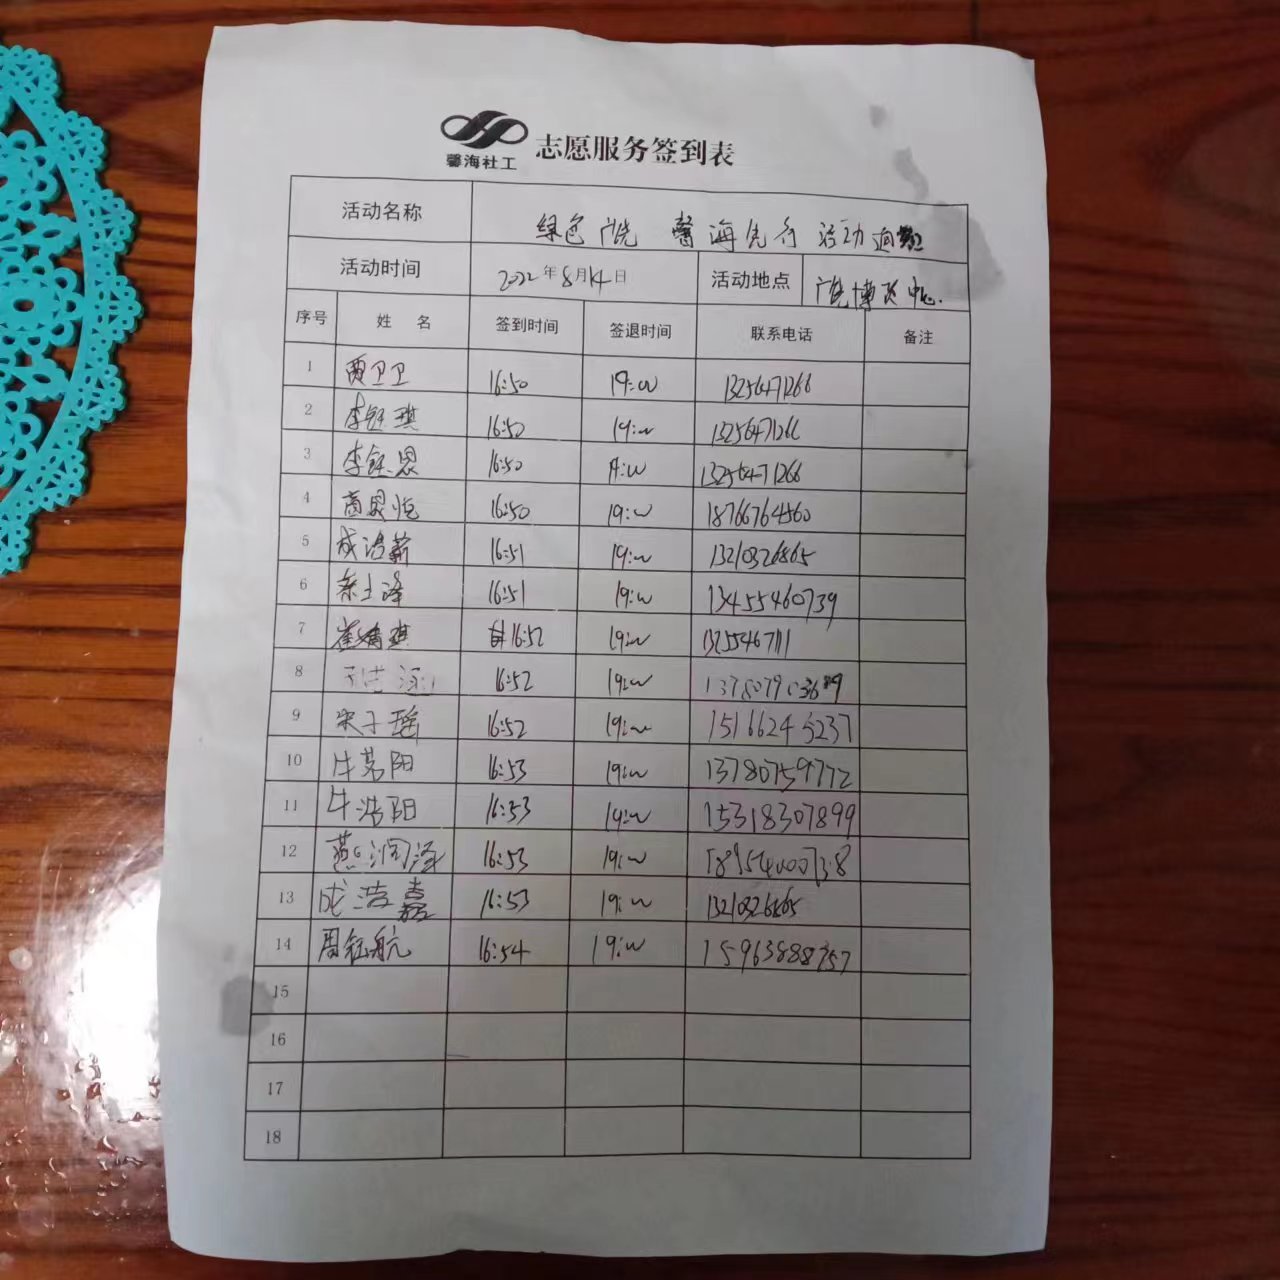 馨海社工 志愿服务签到表
活动名称 绿色广饶 馨海先行 活动
活动时间 2022年8月14日 活动地点 广饶博 中心.
序号 姓 名 签到时间 签退时间 联系电话 备注
1 贾卫卫 16:50 19:00 13256471266
2 李钰琪 16:50 19:00 13256471266
3 李钰恩 16:50 19:00 13256471266
4 商恩恒 16:50 19:00 18766764560
5 成浩 16:51 19:00 13210326865
6 16:51 19:00 13455460739
7 16:52 19:00 13255467111
8 16:52 19:00
9 宋子瑶 16:52 19:00 15166245237
10 牛茗阳 16:53 19:00 13780759772
11 牛浩阳 16:53 19:00 15318307899
12 燕润泽 16:53 19:00
13 成浩嘉 16:53 19:00 13210326865
14 周钰航 16:54 19:00 15963888757
15
16
17
18